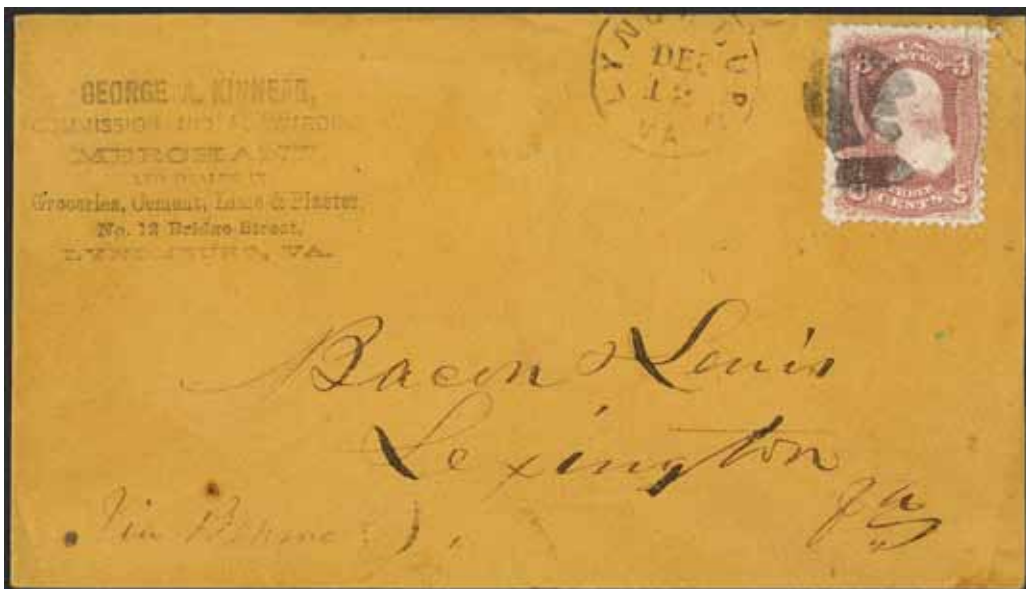 GEORGE A. KINNEAR,
COMMISSION AND FORWARDING
MERCHANT
AND DEALER IN
Groceries, Cement, Lime & Plaster,
No. 12 Bridge Street,
LYNCHBURG, VA.
LYNCHBURG
DEC
VA
U.S. POSTAGE
3 3
THREE
CENTS
Bacon & Louis
Lexington
Va
Via